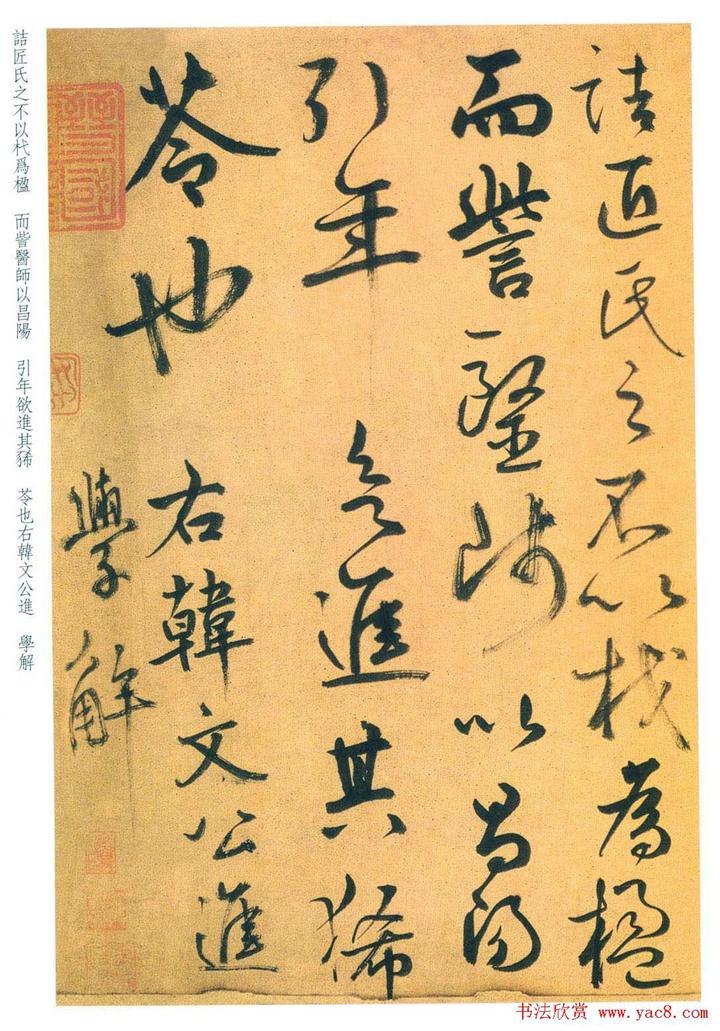 詰匠氏之不以杙為楹
而訾醫師以昌陽
引年欲進其豨
苓也 右韓文公進
學解
詰匠氏之不以杙爲楹 而訾醫師以昌陽 引年欲進其豨 苓也右韓文公進 學解
书法欣赏 www.yac8.com